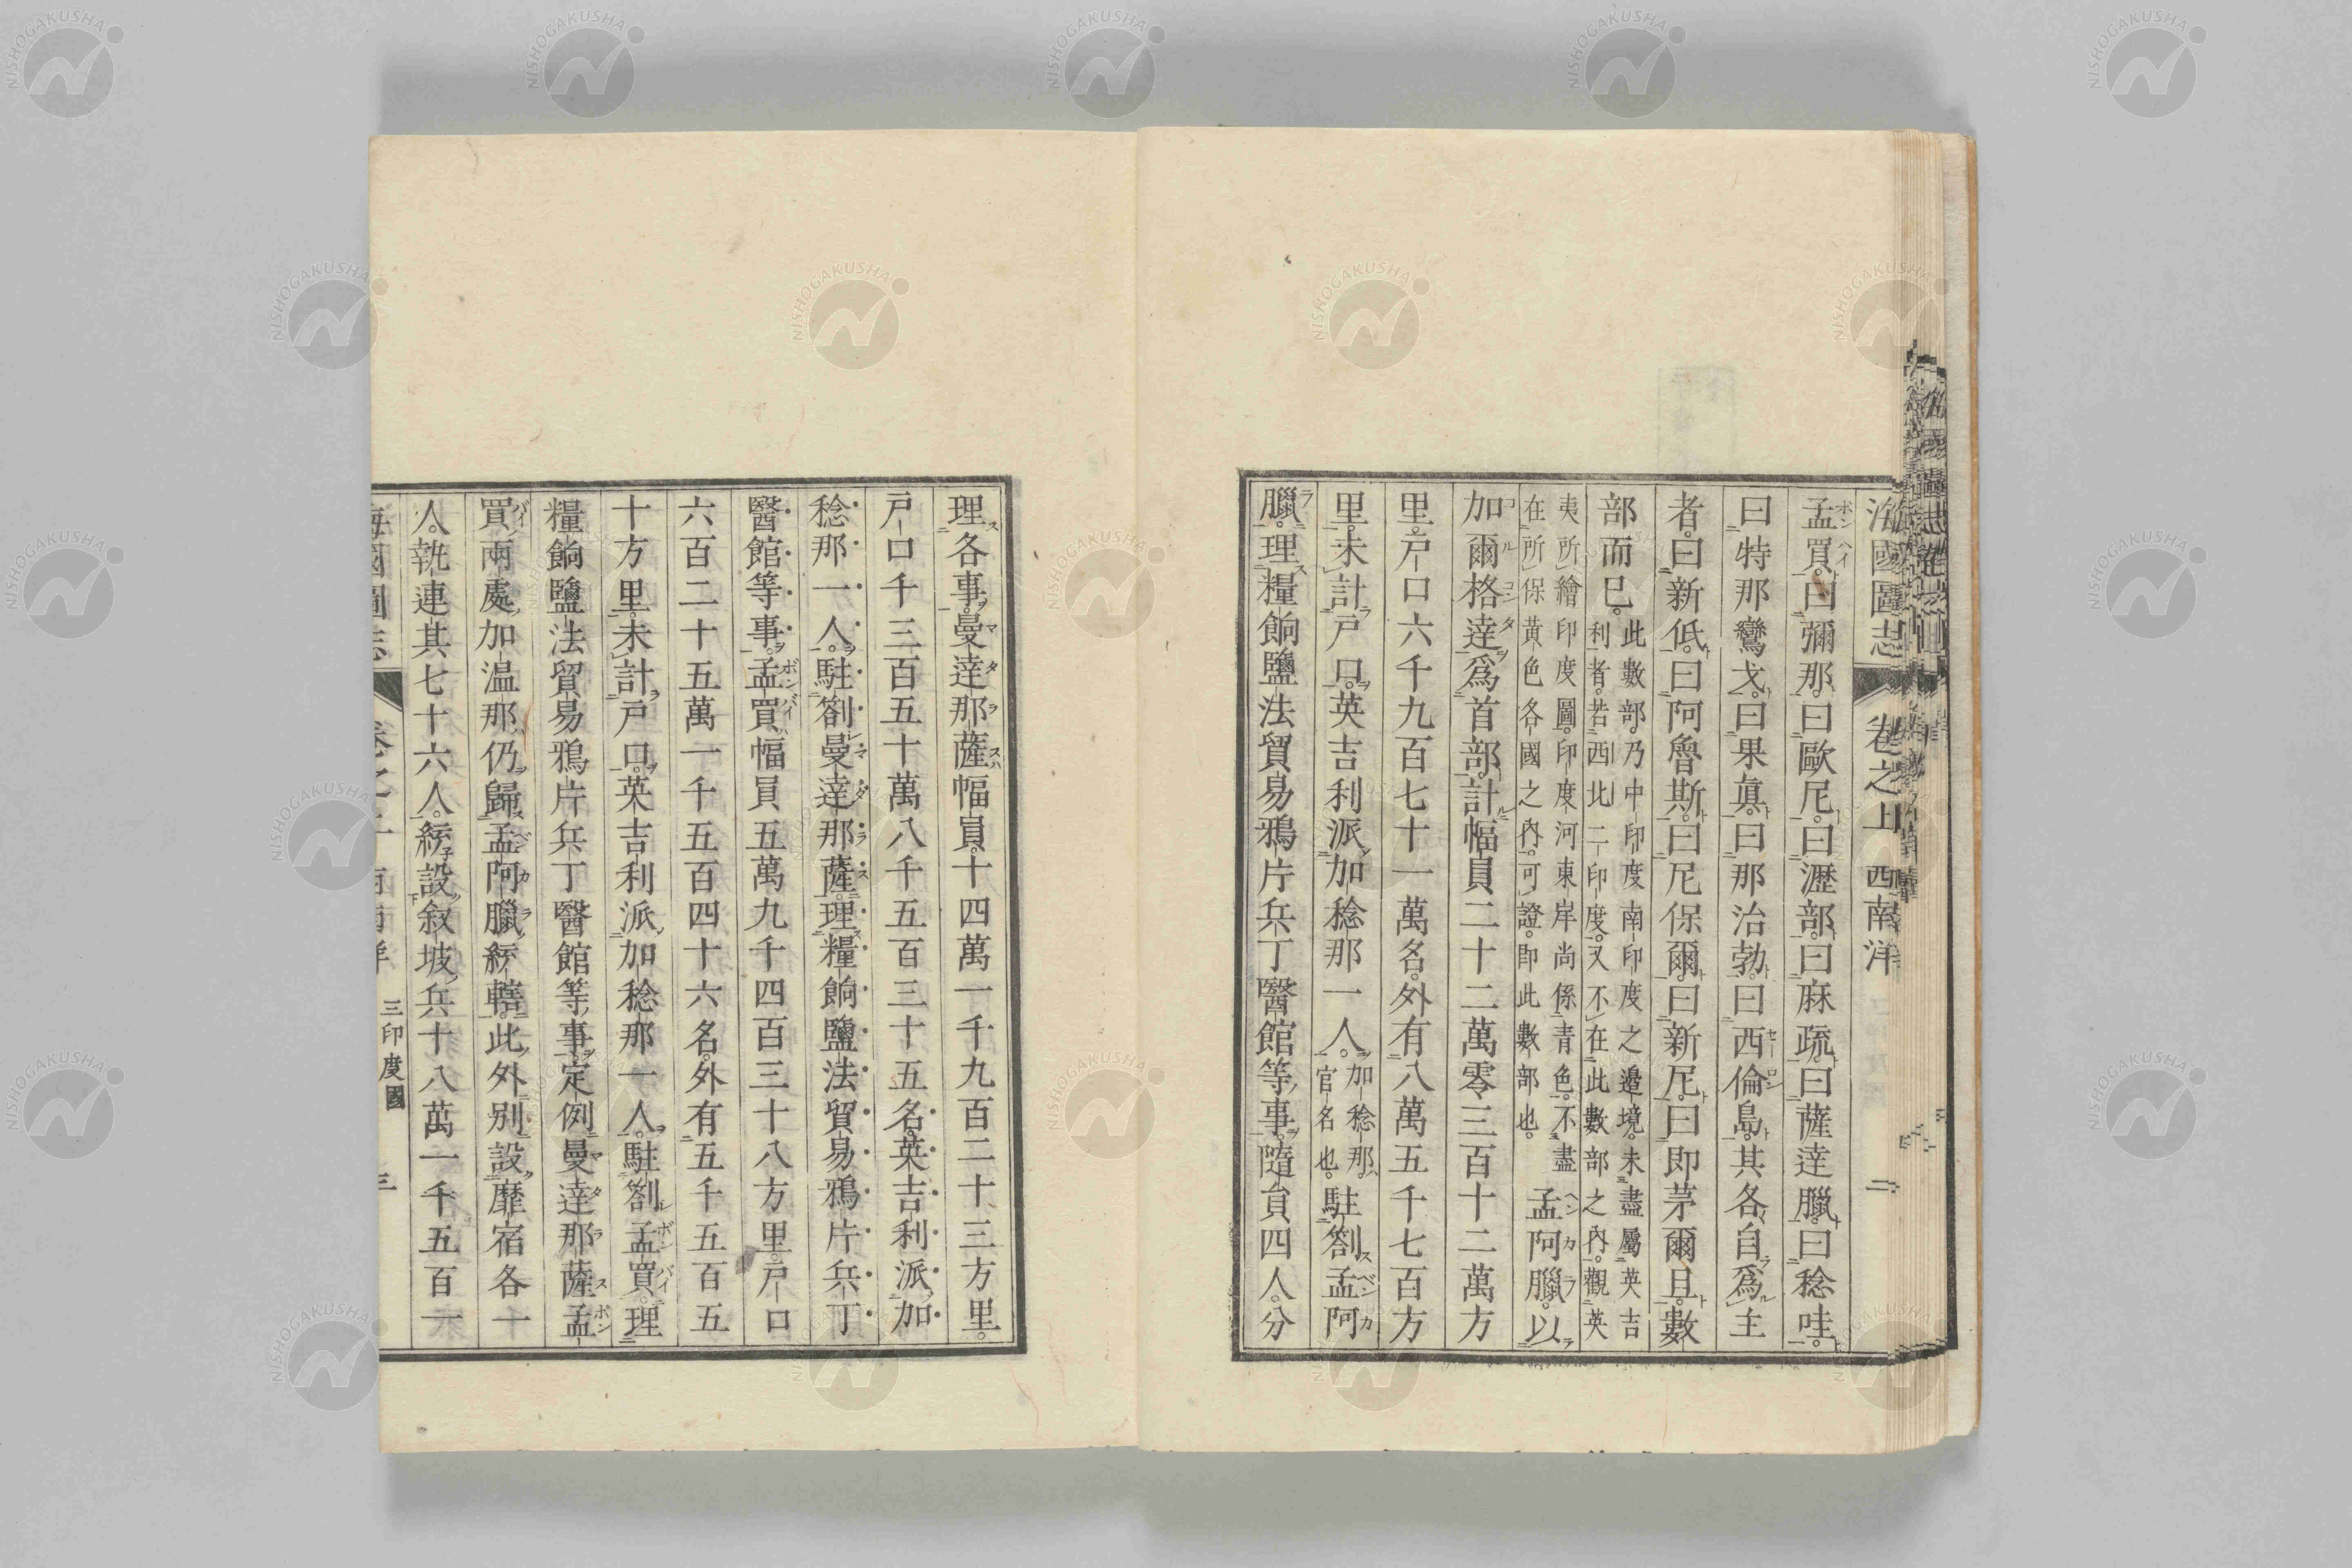 海國圖志 卷之上 西南洋 二
孟買。曰彌那。曰歐尼。曰瀝部。曰麻疏。曰薩達臘。曰稔哇。
曰特那鸞戈。曰果眞。曰那治勃。曰西倫島。其各自爲主
者。曰新低。曰阿魯斯。曰尼保爾。曰新尼。曰即茅爾且。數
部而已。此數部。乃中印度南印度之邊境。未盡屬英吉
利者。若西北二印度。又不在此數部之內。觀英
夷所繪印度圖。印度河東岸尚係青色。不盡
在所保黃色各國之內。可證。即此數部也。孟阿臘。以
加爾格達爲首部。計幅員二十二萬零三百十二萬方
里。戸口六千九百七十一萬名。外有八萬五千七百方
里。未計戸口。英吉利派加稔那一人。加稔那。官名也。駐劄孟阿
臘。理糧餉鹽法貿易鴉片兵丁醫館等事。隨員四人。分
理各事。曼達那薩幅員。十四萬一千九百二十三方里。
戸口千三百五十萬八千五百三十五名。英吉利派加
稔那一人。駐劄曼達那薩。理糧餉鹽法貿易鴉片兵丁
醫館等事。孟買幅員五萬九千四百三十八方里。戸口
六百二十五萬一千五百四十六名。外有五千五百五
十方里。未計戸口。英吉利派加稔那一人。駐劄孟買。理
糧餉鹽法貿易鴉片兵丁醫館等事。定例曼達那薩孟
買兩處加温那。仍歸孟阿臘統轄。此外別設靡宿各一
人。執連其七十六人。統設敘坡兵十八萬一千五百一
海國圖志 西南洋 三印度國 三
NISHOGAKUSHA